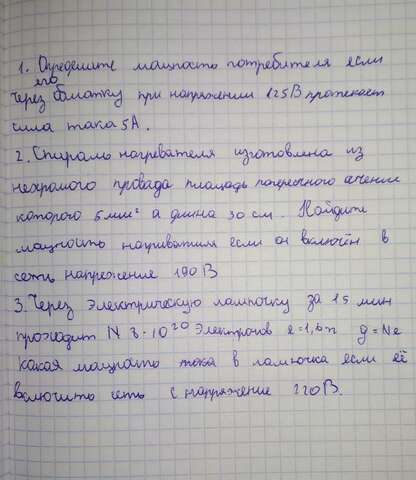 1. Определите мощность потребителя если
его
через обмотку при напряжении 125В протекает
сила тока 5А.
2. Спираль нагревателя изготовлена из
нехромого провада площадь поперечного сечение
которого 5мм² а длина 30 см. Найдите
мощность нагривателя если он включён в
сеть напрежение 190В
3. Через электрическую лампочку за 15 мин
проходит N 3·10²⁰ электронов e=1,6 g=Ne
какая мощность тока в лампочка если её
включить сеть с напряжение 220В.